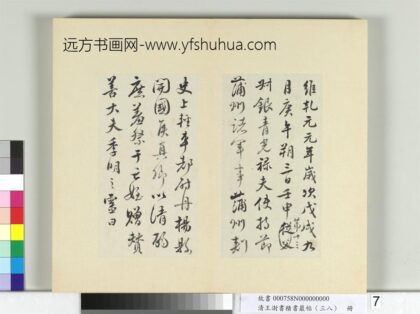 远方书画网-www.yfshuhua.com
維乾元元年歲次戊戌九
月庚午朔三日壬申第十三從父
叔銀青光祿夫使持節
蒲州諸軍事蒲州刺
史上輕車都尉丹楊縣
開國侯真卿以清酌
庶羞祭于亡姪贈贊
善大夫季明之靈曰
故書 000758N000000000
清王澍書積書巖帖(三八) 冊
7